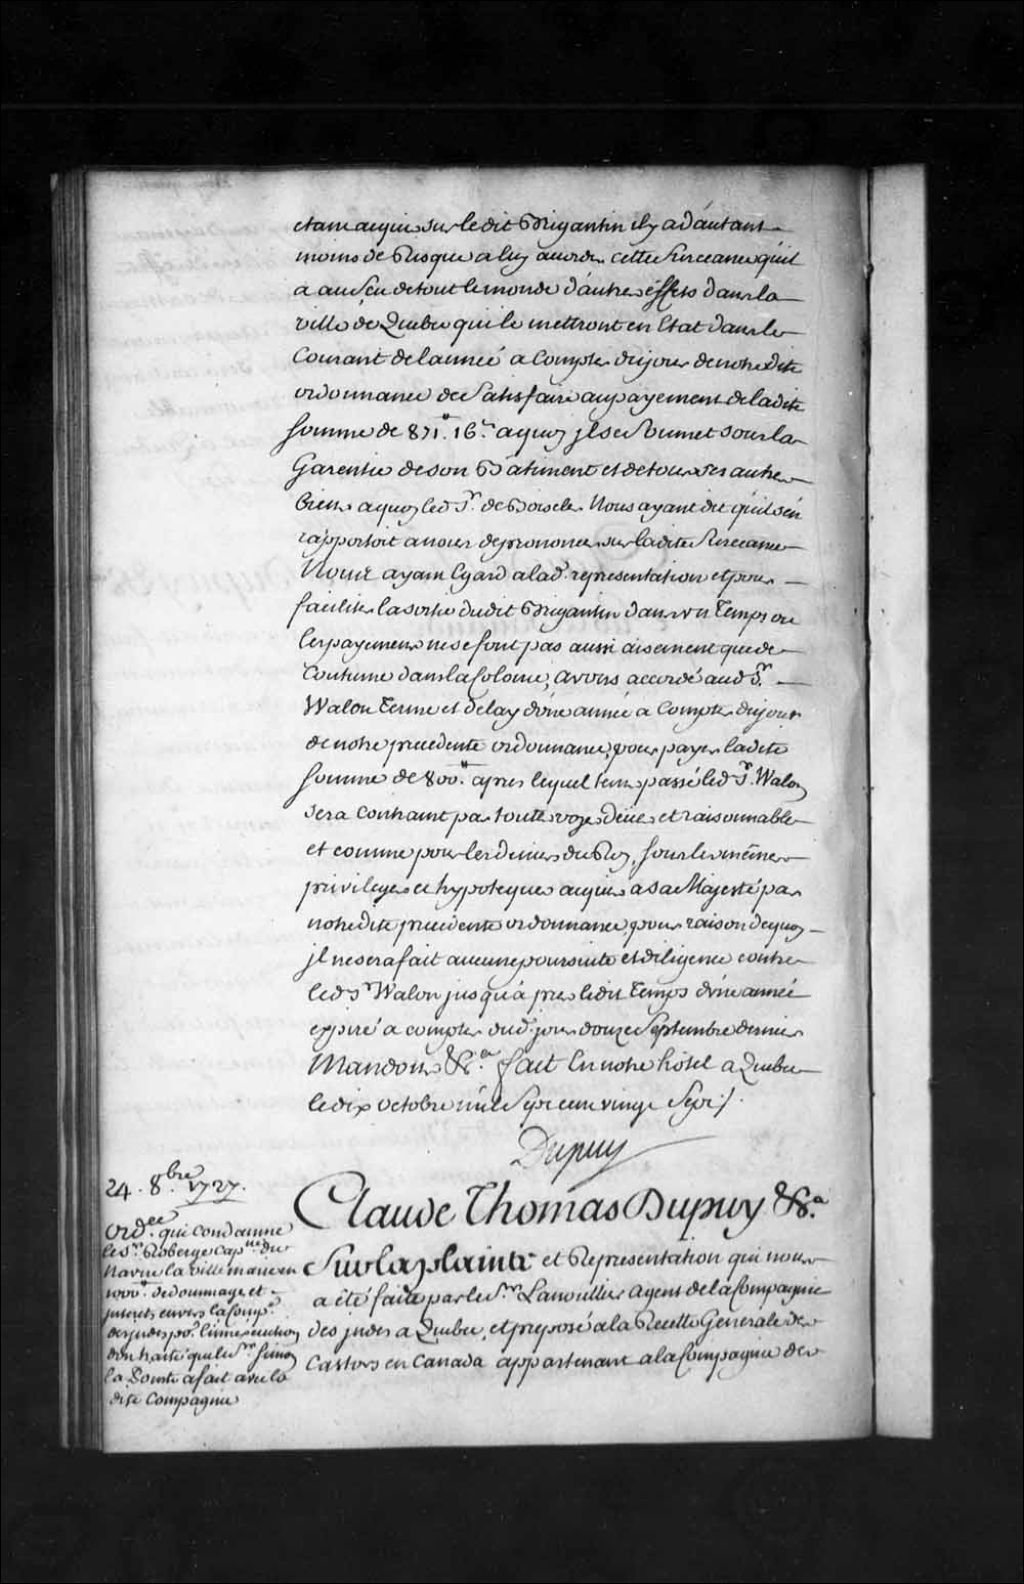 etant acquis sur ledit Brigantin il y a d'autant
moins de Risque a luy accorder cette Surceance qu'il
a au Sçu de tout le monde d'autres éffets dans la
ville de Quebec qui le mettront en Etat dans le
Courant de l'année a Compter du jour de notre dite
ordonnance de Satisfaire au payement de ladite
Somme de 871.# 16.s a quoy jl se Soumet sous la
Garentie de son Bâtiment et de tous ses autres
biens a quoy led. Sr. de Boiscler Nous ayant dit qu'il s'en
rapportoit a nous de prononcer sur ladite Surceance
Nous ayant Egard a lad. representation et pour
faciliter la sortie dudit Brigantin dans un Temps ou
les payemens ne se font pas aussi aisement que de
Coutume dans la Colonie, avons accordé aud. Sr.
Walon Terme et delay d'une année a Compter du jour
de notre precedente ordonnance, pour payer ladite
Somme de 800.# apres lequel tems passé led. Sr. Walon
sera Contraint par toutes voyes dües et raisonnables
et comme pour les deniers du Roy, sous les mêmes
privileges et hypoteques acquis a sa Majesté par
notredite precedente ordonnance, pour raison de quoy
jl ne sera fait aucune poursuite et diligence contre
led. Sr. Walon jusqu'à pres ledit Temps d'une année
expiré a compter dud. jour douze Septembre dernier
Mandons &c.a fait En notre hôtel a Quebec
le dix octobre mil Sept cent vingt Sept ./.
Dupuy
24. 8.bre 1727.
Ord.ce qui Condamne
le Sr. Roberge Cap.ne du
Navire la ville marie en
1000.# de dommages et
jnterets envers la Comp.e
des jndes po.r l'inexecution
d'un traité que le Sr. Simon
la Pointe a fait avec la
dite Compagnie
Claude Thomas Dupuy &c.a
Sur la plainte et Representation qui nous
a été faite par le Sr. Lanoullier agent de la Compagnie
des jndes a Quebec, et preposé a la Recette Generale des
Castors en Canada appartenant a la Compagnie des